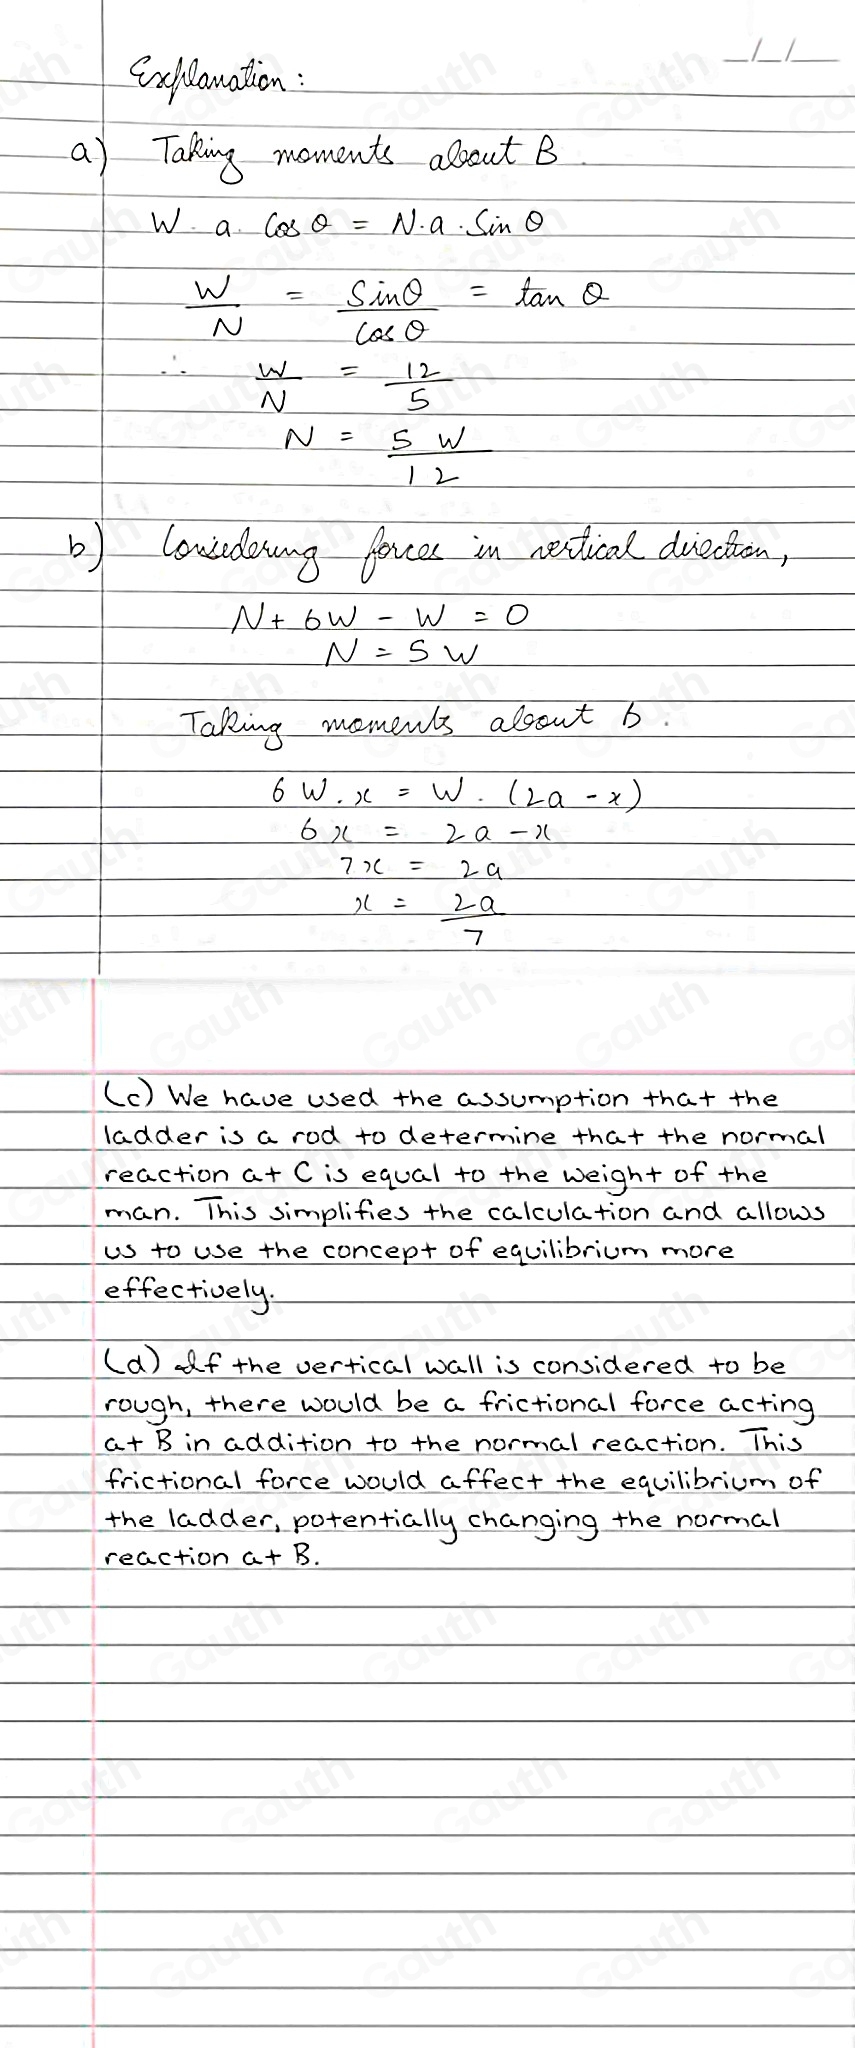 _/_/__
Explanation :
a) Taking moments about B.
W. a. Cos θ = N.a. Sin θ
W/N = Sinθ/Cos θ = tan θ
∴ W/N = 12/5
N = 5 W/12
b) Considering forces in vertical direction,
N + 6W - W = 0
N = 5 W
Taking moments about b.
6 W. x = W. (2a - x)
6x = 2a - x
7x = 2a
x = 2a/7
(c) We have used the assumption that the
ladder is a rod to determine that the normal
reaction at C is equal to the weight of the
man. This simplifies the calculation and allows
us to use the concept of equilibrium more
effectively.
(d) If the vertical wall is considered to be
rough, there would be a frictional force acting
at B in addition to the normal reaction. This
frictional force would affect the equilibrium of
the ladder, potentially changing the normal
reaction at B.